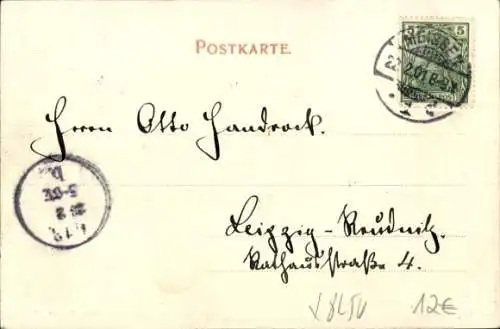 POSTKARTE.
5
MEISSEN
Herrn Otto Handrock.
Leipzig-Reudnitz
Rathausstraße 4.
12€